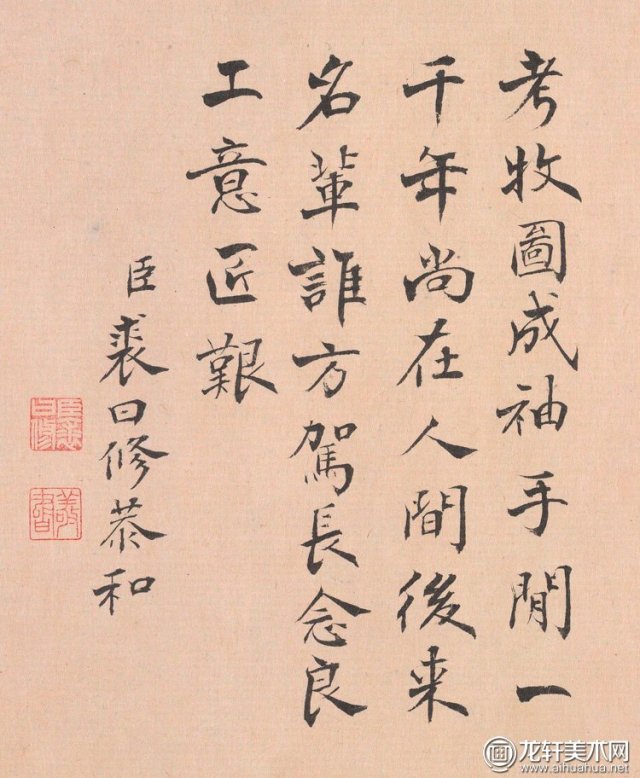 考牧圖成袖手閒一
千年尚在人間後来
名輩誰方駕長念良
工意匠艱
臣裘曰修恭和
臣裘曰修
敬書
龙轩美术网
www.aihuahua.net